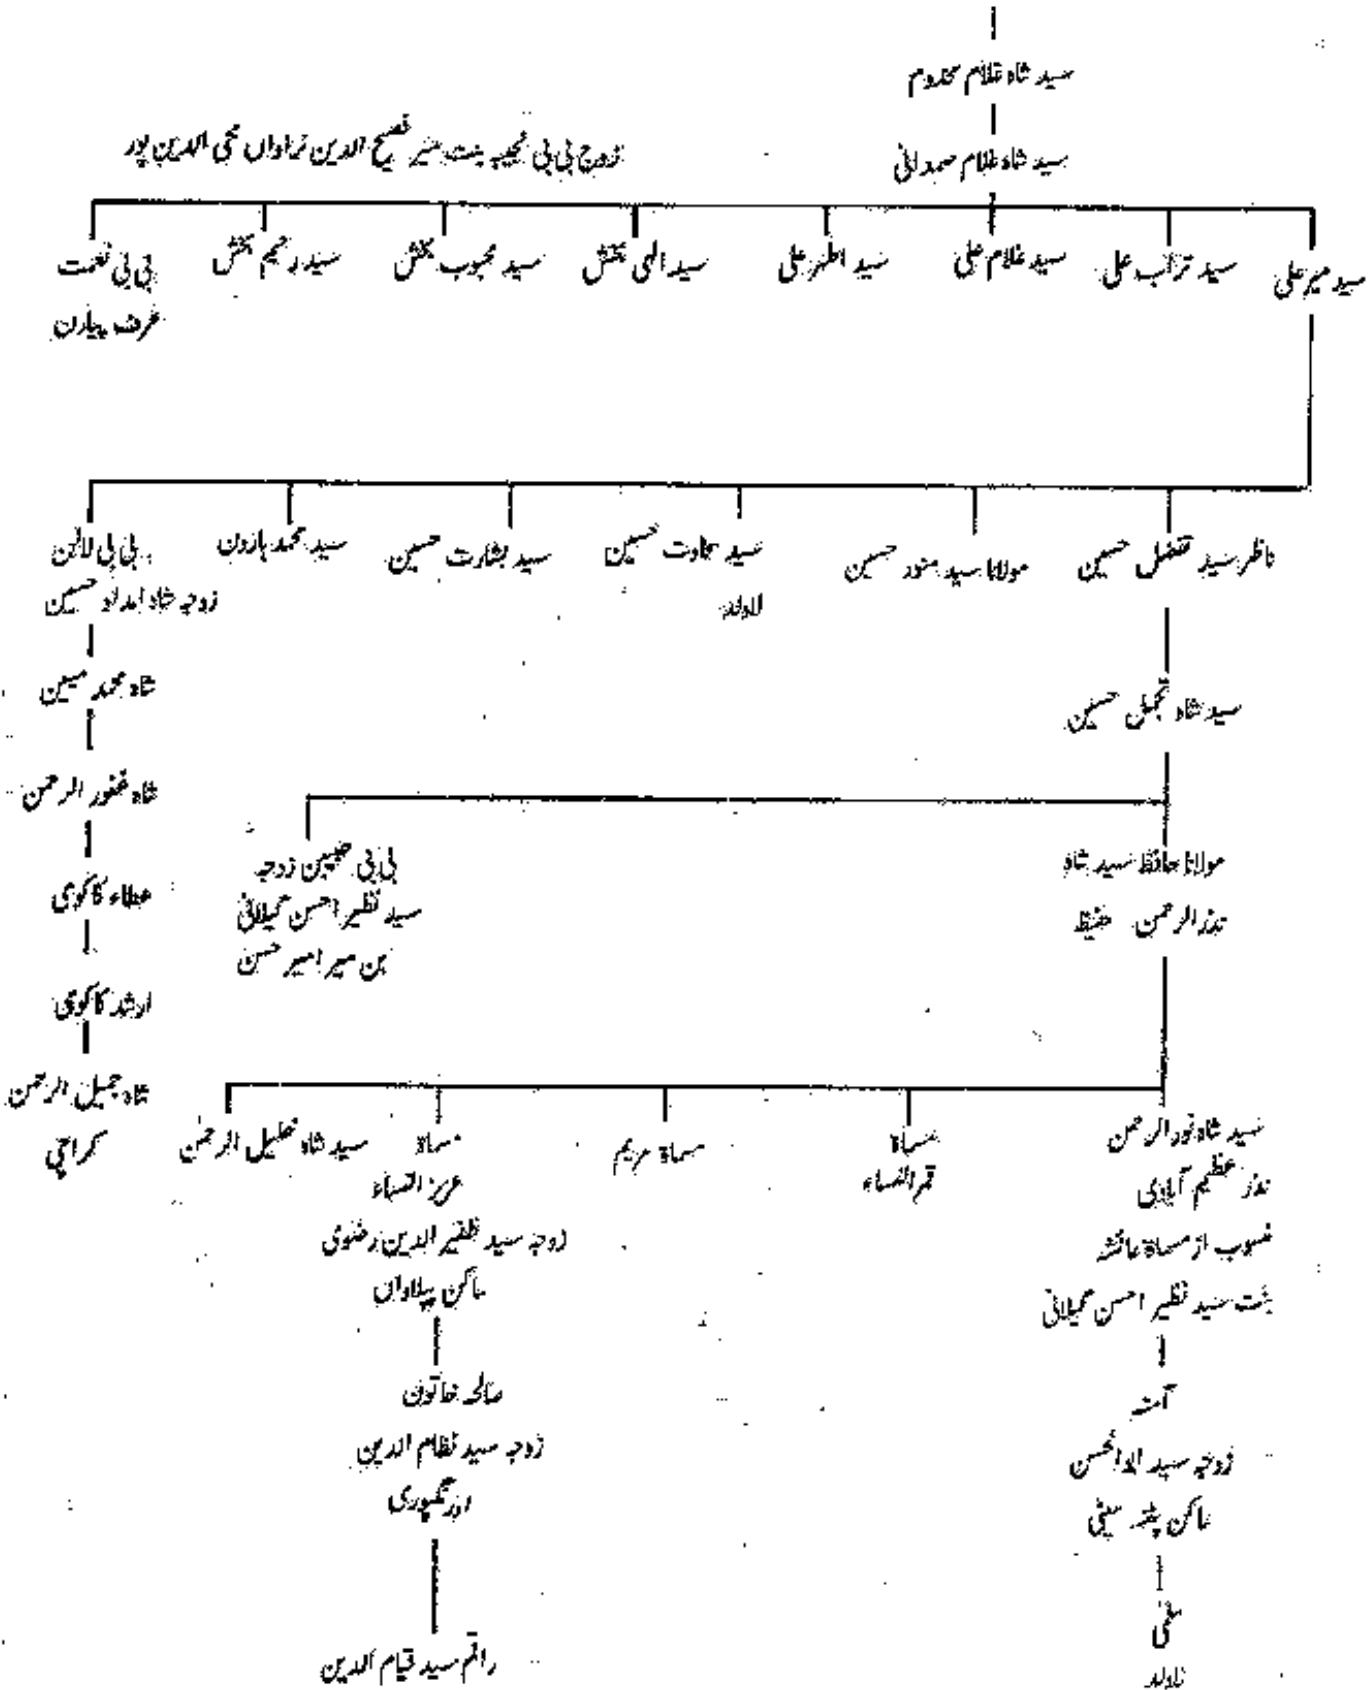 سید شاہ غلام مخدوم
سید شاہ غلام صمدانی
زوج بی بی نجیبہ بنت میر فصیح الدین نراواں محی الدین پور
سید میر علی
سید تراب علی
سید غلام علی
سید اطہر علی
سید الہی بخش
سید محبوب بخش
سید رحیم بخش
بی بی نعمت
عرف پیارن
ناظر سید تفضل حسین
مولانا سید منور حسین
سید سخاوت حسین
لاولد
سید بشارت حسین
سید محمد ہارون
بی بی لاڈن
زوجہ شاہ امداد حسین
شاہ محمد مبین
شاہ غفور الرحمن
عطاء کاکوی
ارشد کاکوی
شاہ جمیل الرحمن
کراچی
سید شاہ تجمل حسین
مولانا حافظ سید شاہ
نذر الرحمن حفیظ
بی بی زوجہ
سید نظیر احسن گیلانی
بن میر امیر حسن
سید شاہ نور الرحمن
نذر عظیم آبادی
منسوب از مسماۃ عائشہ
بنت سید نظیر احسن گیلانی
آمنہ
زوجہ سید ابوالحسن
ساکن پٹنہ سیٹی
سلمی
لاولد
مسماۃ
قمر النساء
مسماۃ مریم
مسماۃ
عزیز النساء
زوجہ سید ظفیر الدین رضوی
ساکن پیلاواں
صالحہ خاتون
زوجہ سید نظام الدین
اورنگپوری
راقم سید قیام الدین
سید شاہ خلیل الرحمن